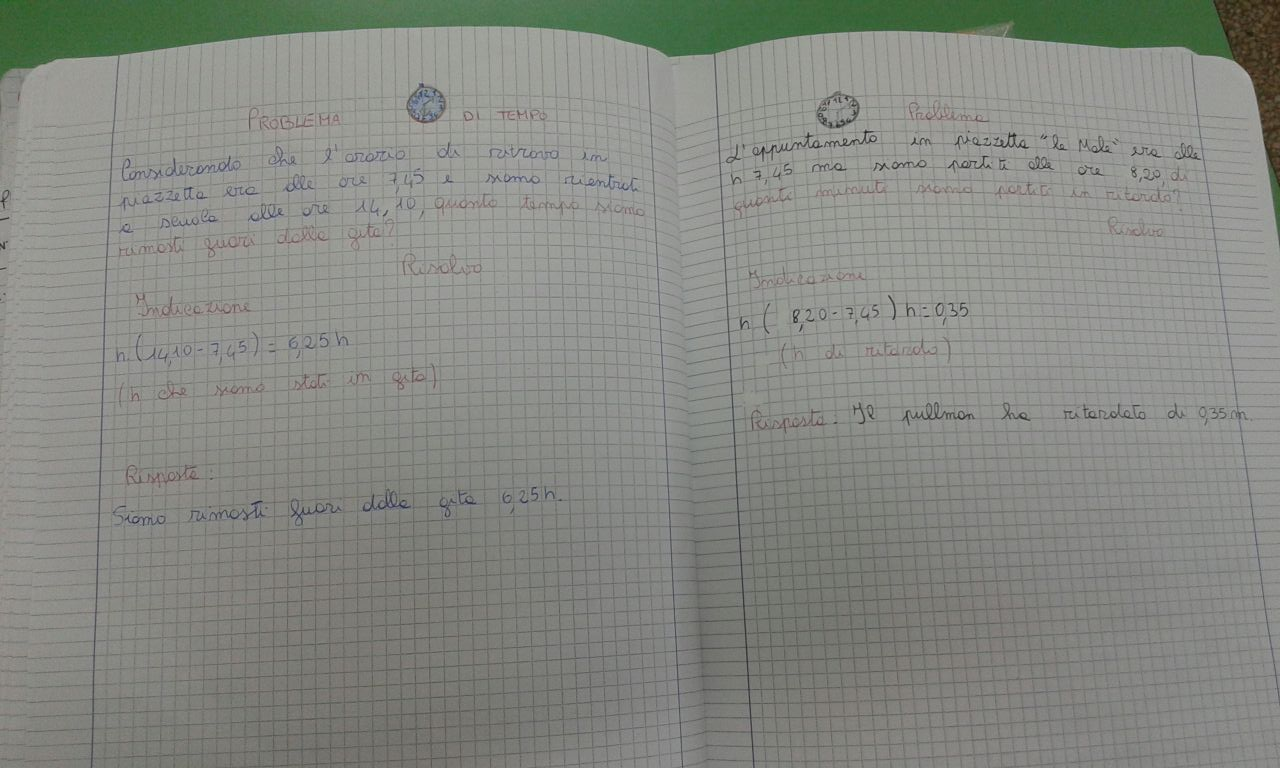 PROBLEMA DI TEMPO
Considerando che l'orario di ritrovo in
piazzetta era alle ore 7,45 e siamo rientrati
a scuola alle ore 14,10, quanto tempo siamo
rimasti fuori dalla gita?
Risolvo
Indicazione
h (14,10 - 7,45) = 6,25 h
(h che siamo stati in gita)
Risposta:
Siamo rimasti fuori dalla gita 6,25 h.
Problema
L'appuntamento in piazzetta "le Mole" era alle
h 7,45 ma siamo partiti alle ore 8,20, di
quanti minuti siamo partiti in ritardo?
Risolvo
Indicazione
h ( 8,20 - 7,45 ) h = 0,35
(h di ritardo)
Risposta: Il pullman ha ritardato di 0,35 m.